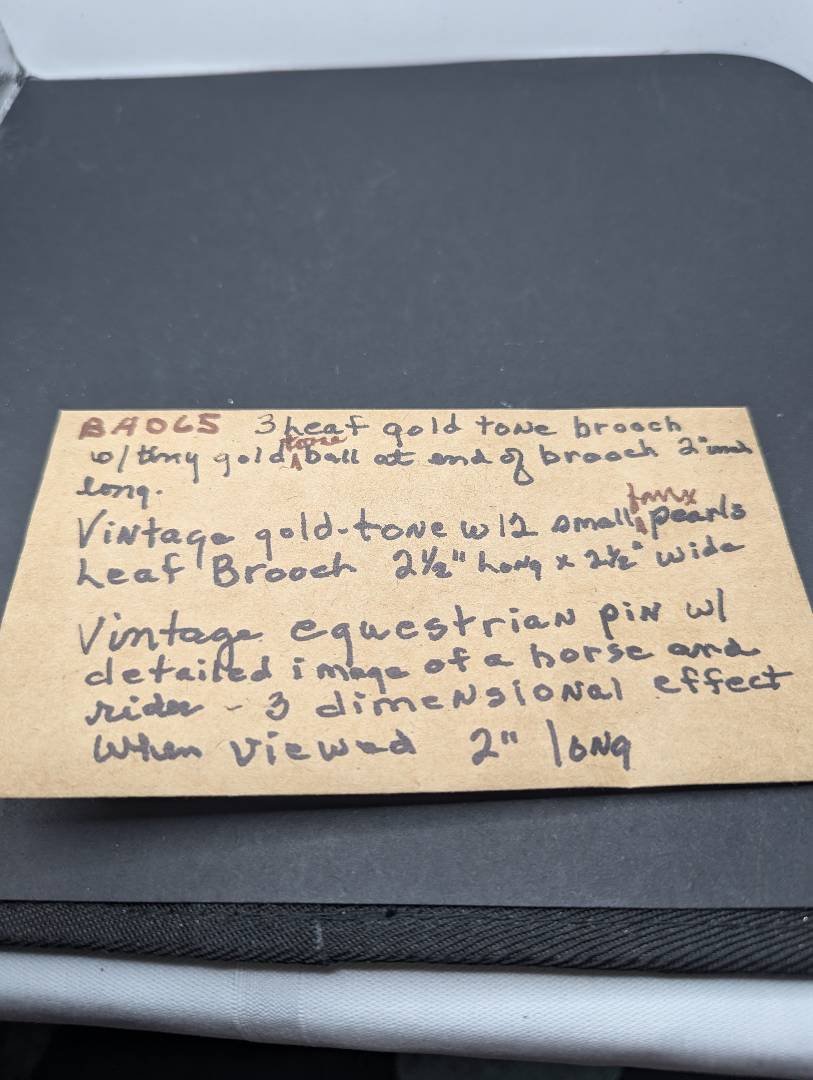 BA065 3 Leaf gold tone brooch
w/ tiny gold tone ball at end of brooch 2" inch
long.
Vintage gold-tone w 12 small faux pearls
Leaf Brooch 2½" Long x 2½" wide
Vintage equestrian pin w/
detailed image of a horse and
rider - 3 dimensional effect
when viewed 2" long